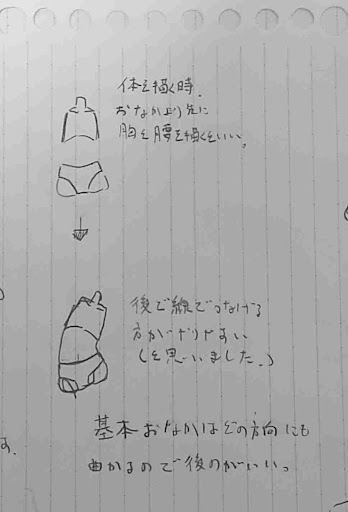 体を描く時.
おなかより先に
胸と腰を描くといい。
後で線でつなげる
方がやりやすい
(と思いました.)
基本おなかはどの方向にも
曲がるので後のがいいっ
す.